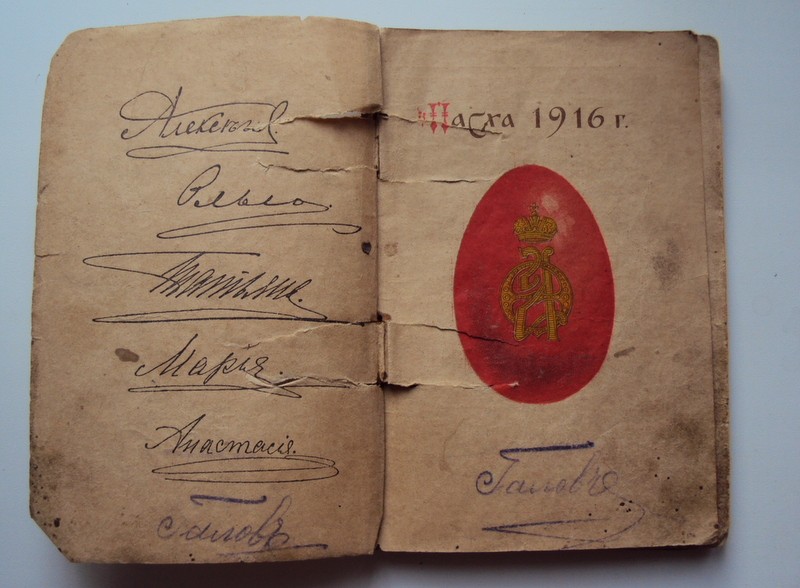 Алексѣй.
Ольга.
Татьяна.
Марія.
Анастасія.
Галовъ
Пасха 1916 г.
Галовъ